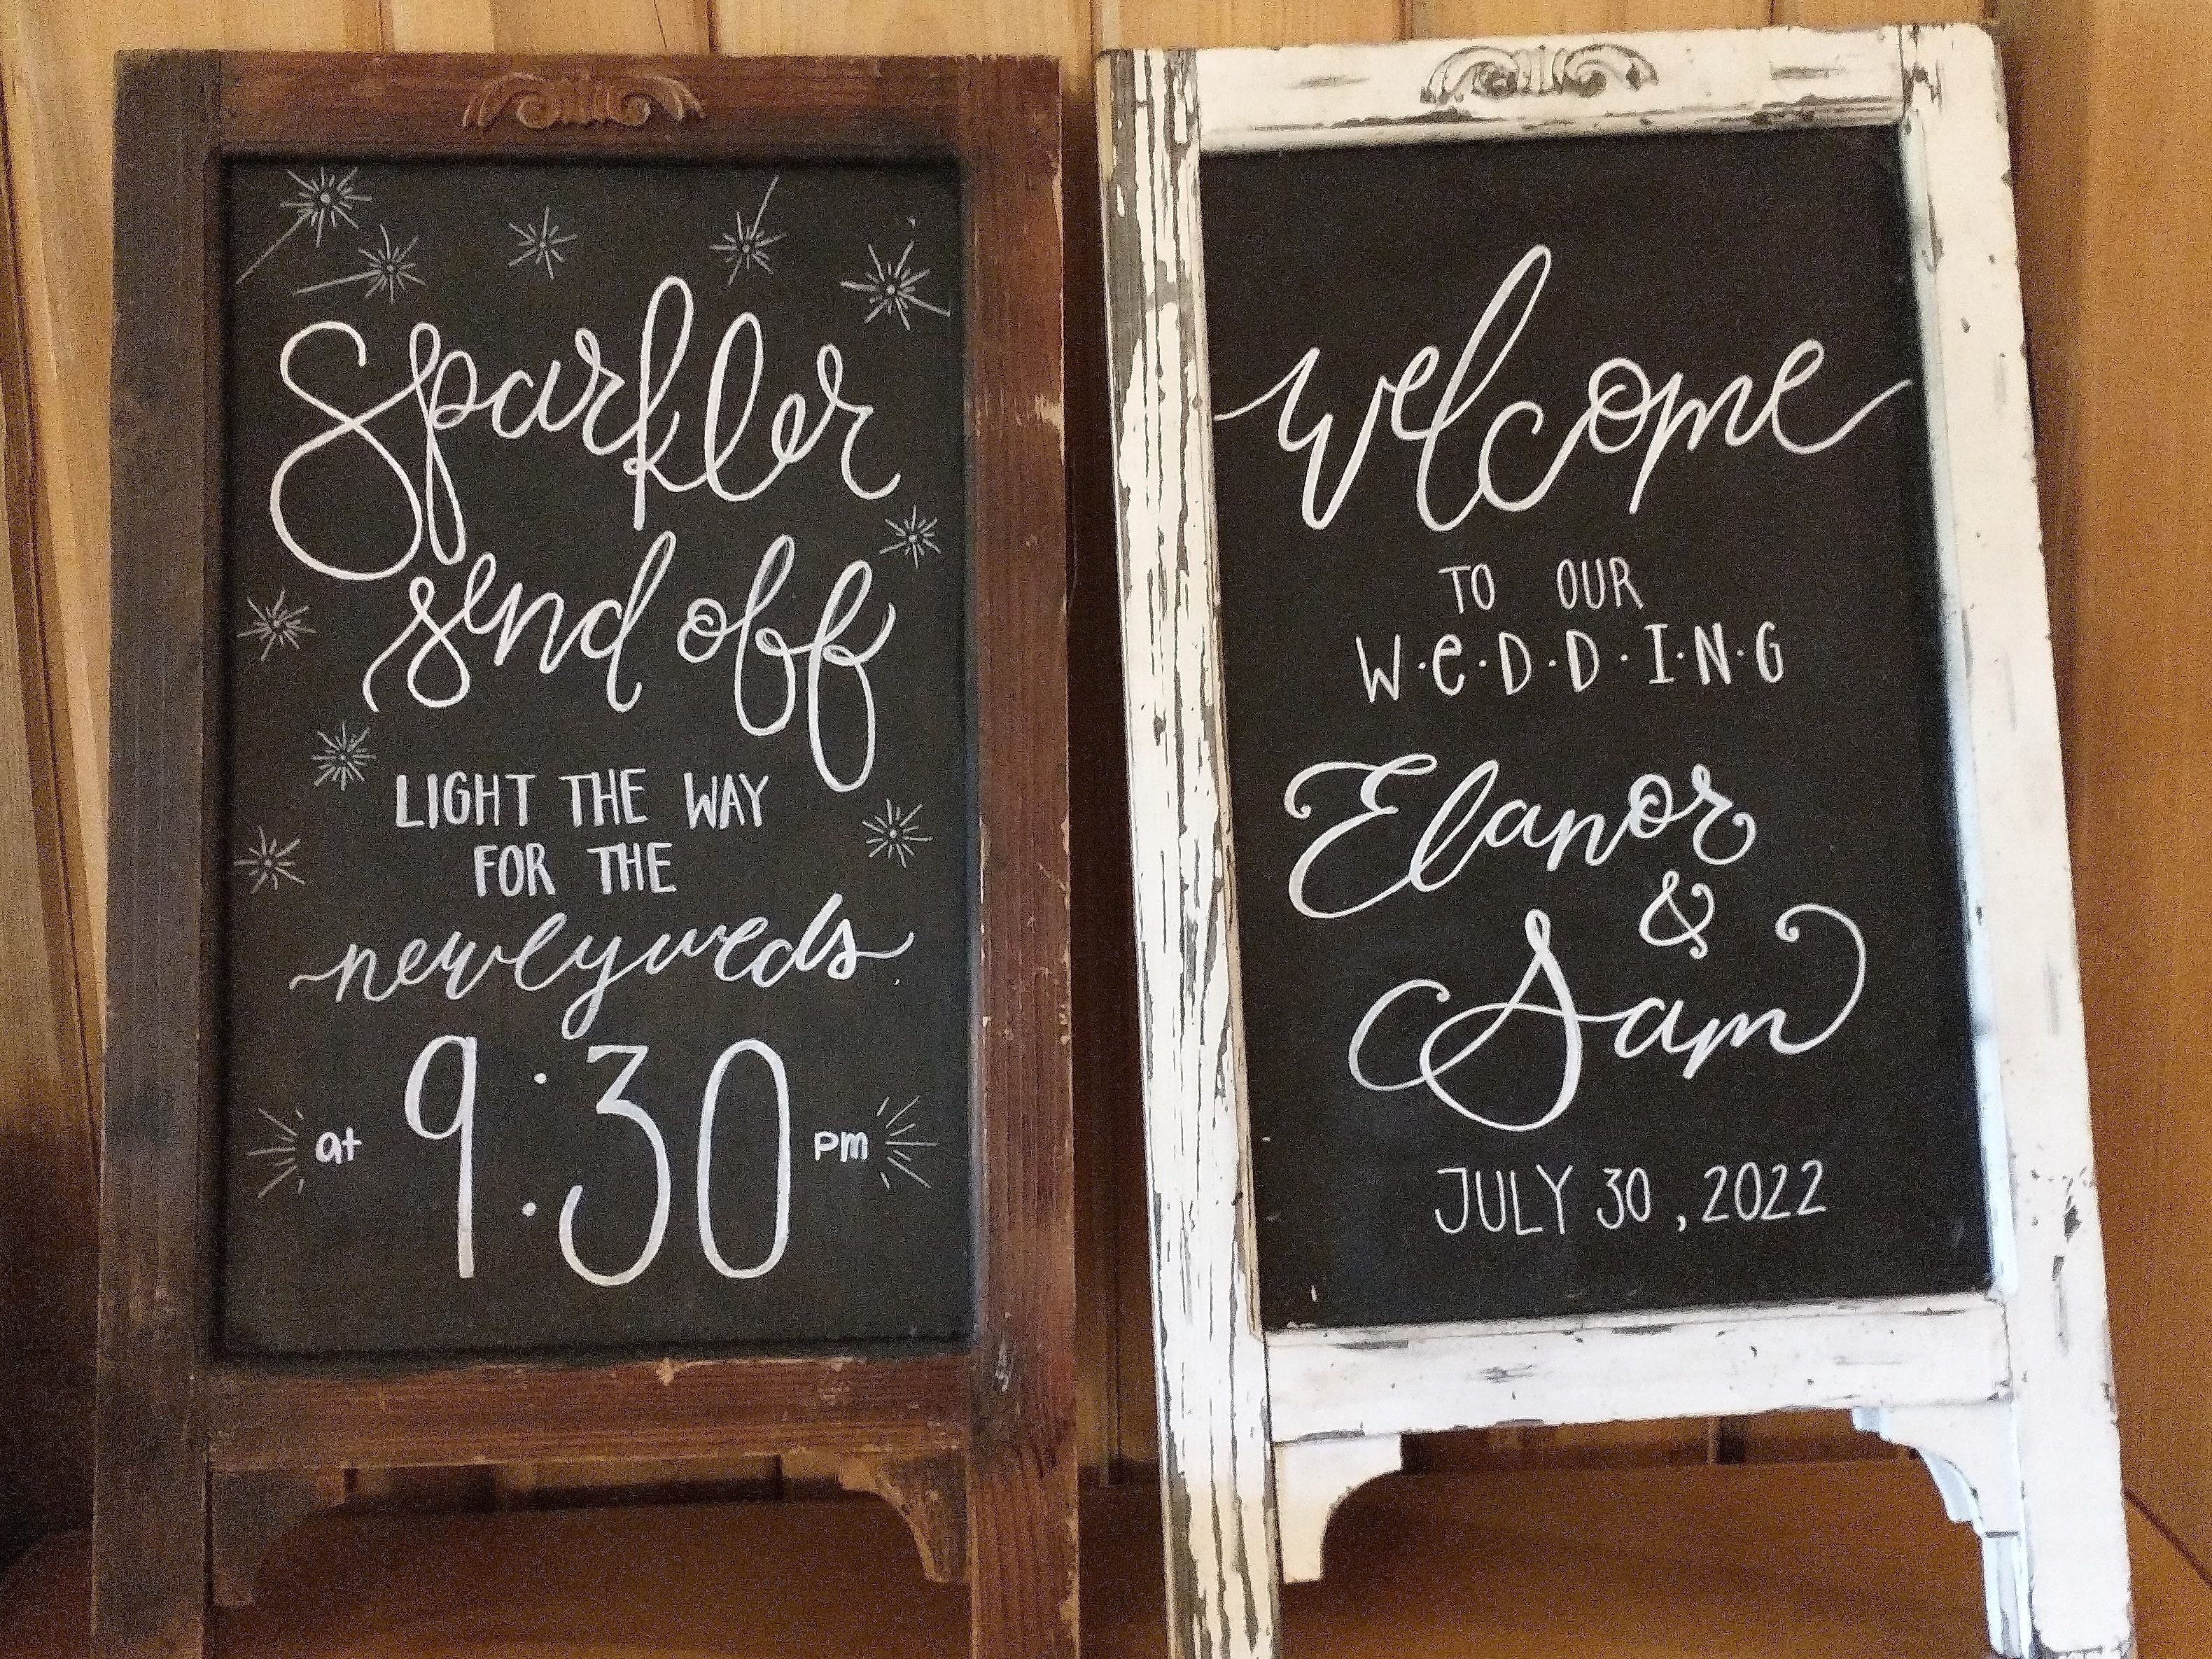 Sparkler
send off
LIGHT THE WAY
FOR THE
newlyweds
at 9:30 pm
welcome
TO OUR
W·e·D·D·I·N·G
Elanor
&
Sam
JULY 30, 2022